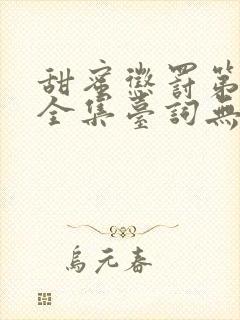 甜蜜懲罰第
全集臺詞無
烏元春